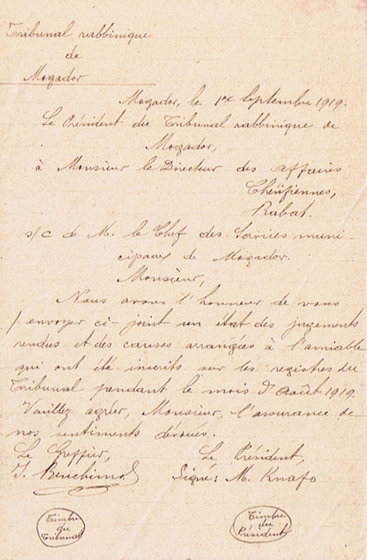 Tribunal rabbinique
de
Mogador
Mogador, le 1er Septembre 1919.
Le Président du Tribunal rabbinique de
Mogador,
à Monsieur le Directeur des affaires
Chérifiennes,
Rabat.
s/c de M. le Chef des Services muni-
cipaux de Mogador.
Monsieur,
Nous avons l'honneur de vous
envoyer ci-joint un état des jugements
rendus et des causes arrangées à l'amiable
qui ont été inscrits sur les registres du
Tribunal pendant le mois d'Août 1919.
Veuillez agréer, Monsieur, l'assurance de
nos sentiments dévoués.
Le Greffier, Le Président,
J. Benchimol Signé: M. Knafo
Timbre du Tribunal
Timbre du Président